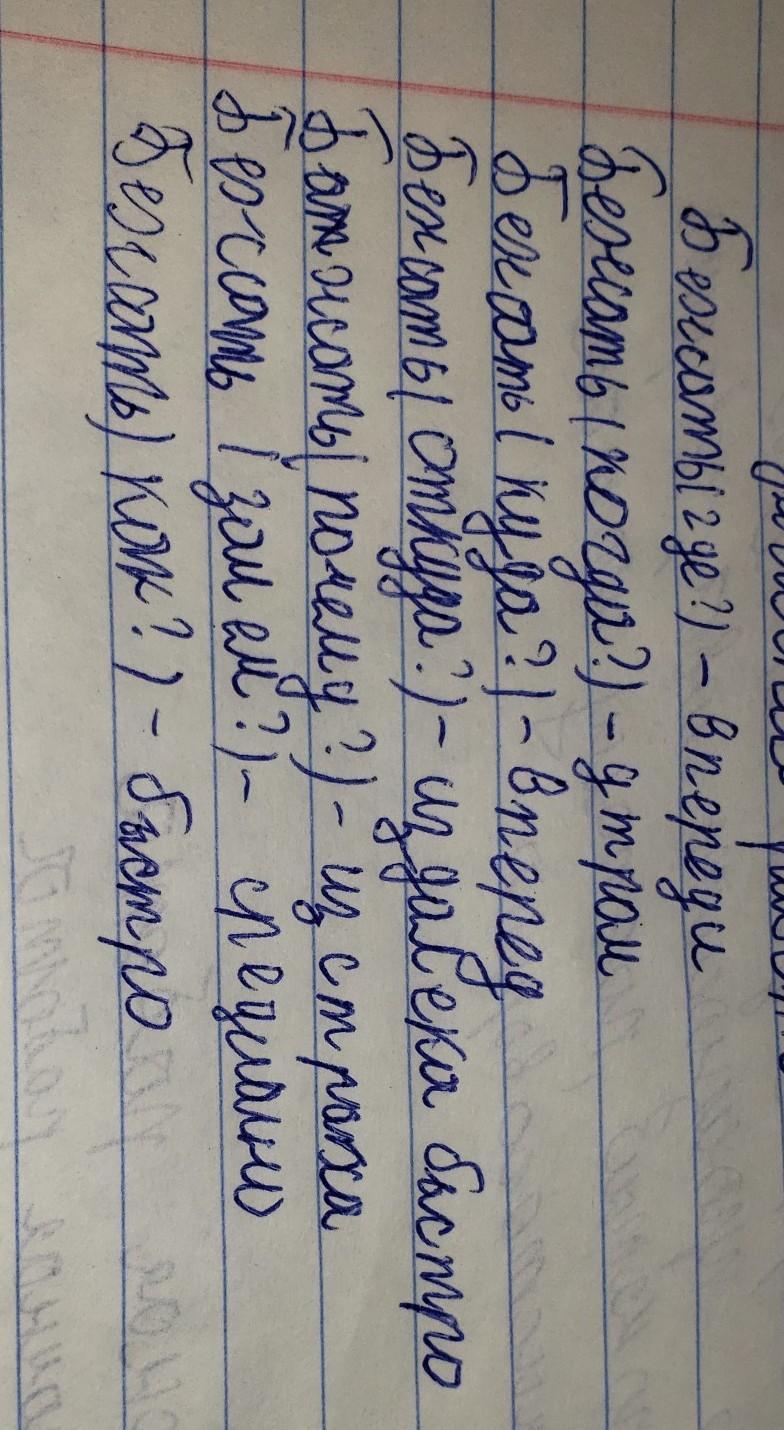 Бежать(где?) - впереди
Бежать(когда?) - утром
Бежать(куда?) - вперед
Бежать(откуда?) - издалека быстро
Бажать(почему?) - из страха
Бежать (зачем?) - специально
Бежать)как?) - быстро